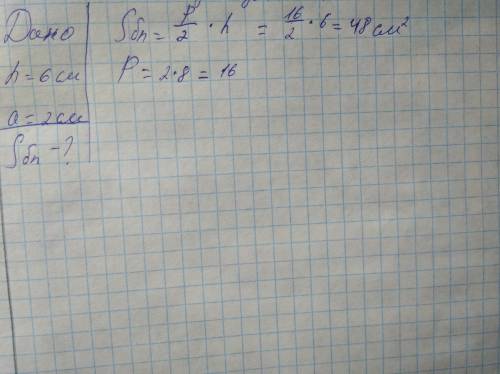 Дано
h = 6 см
a = 2 см
Sбп - ?
Sбп = P/2 · h = 16/2 · 6 = 48 см²
P = 2·8 = 16